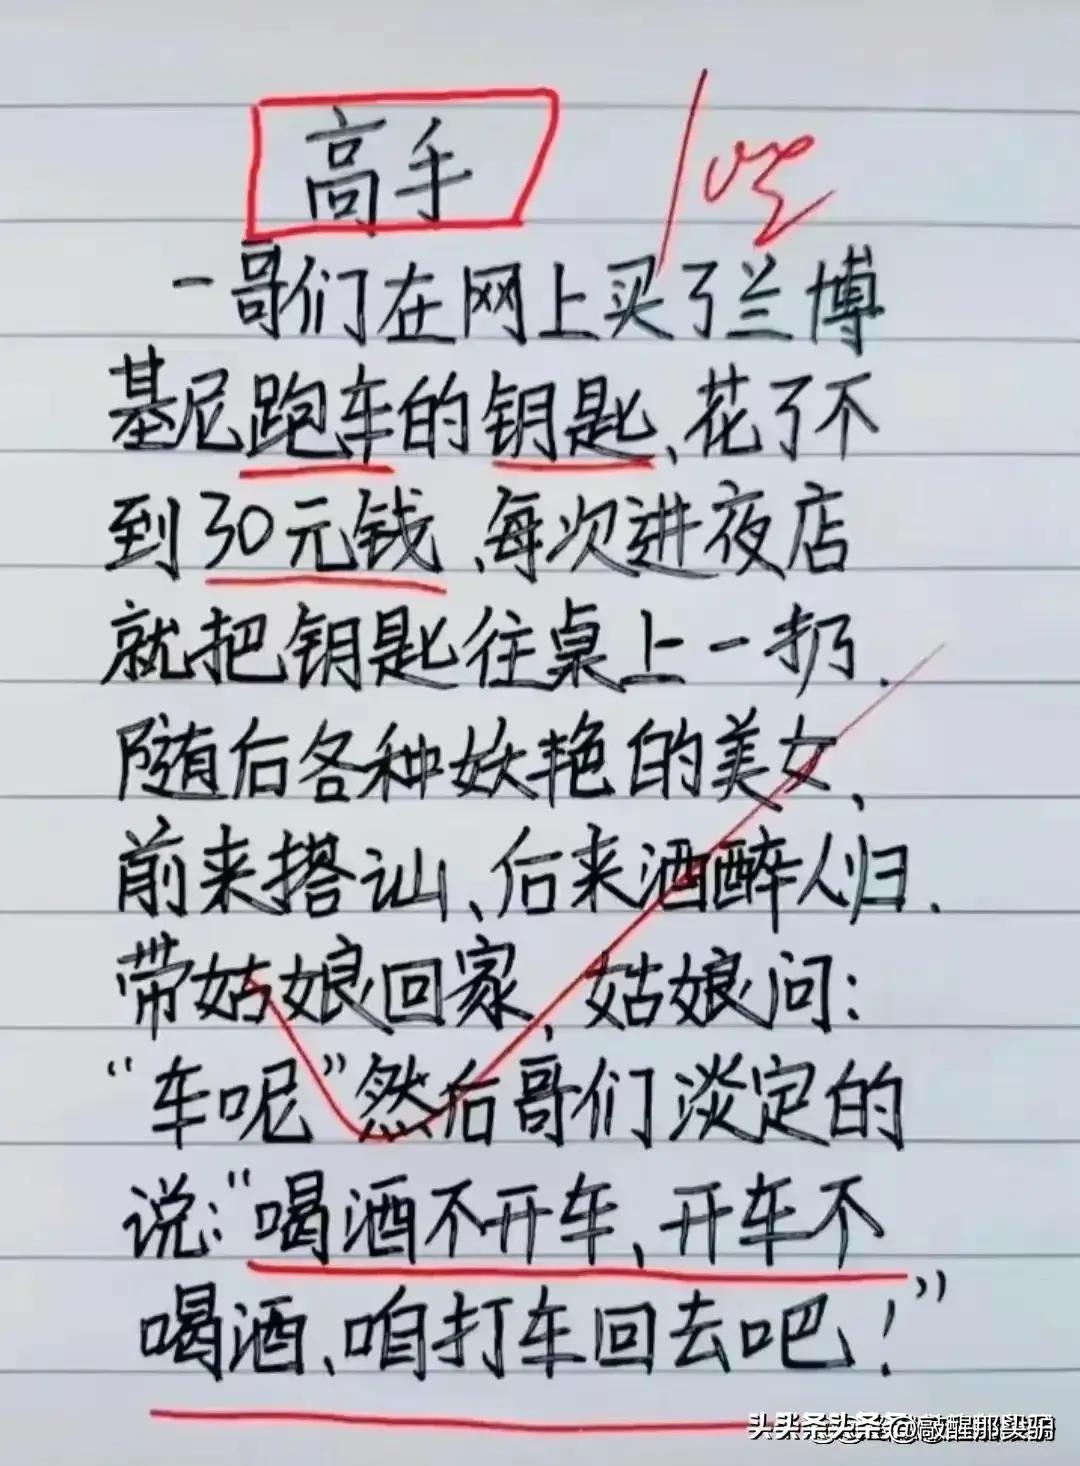 高手
一哥们在网上买了兰博
基尼跑车的钥匙、花了不
到30元钱、每次进夜店
就把钥匙往桌上一扔.
随后各种妖艳的美女、
前来搭讪、后来酒醉人归.
带姑娘回家、姑娘问：
“车呢”然后哥们淡定的
说：“喝酒不开车、开车不
喝酒、咱打车回去吧！”
@敲醒那梁玥